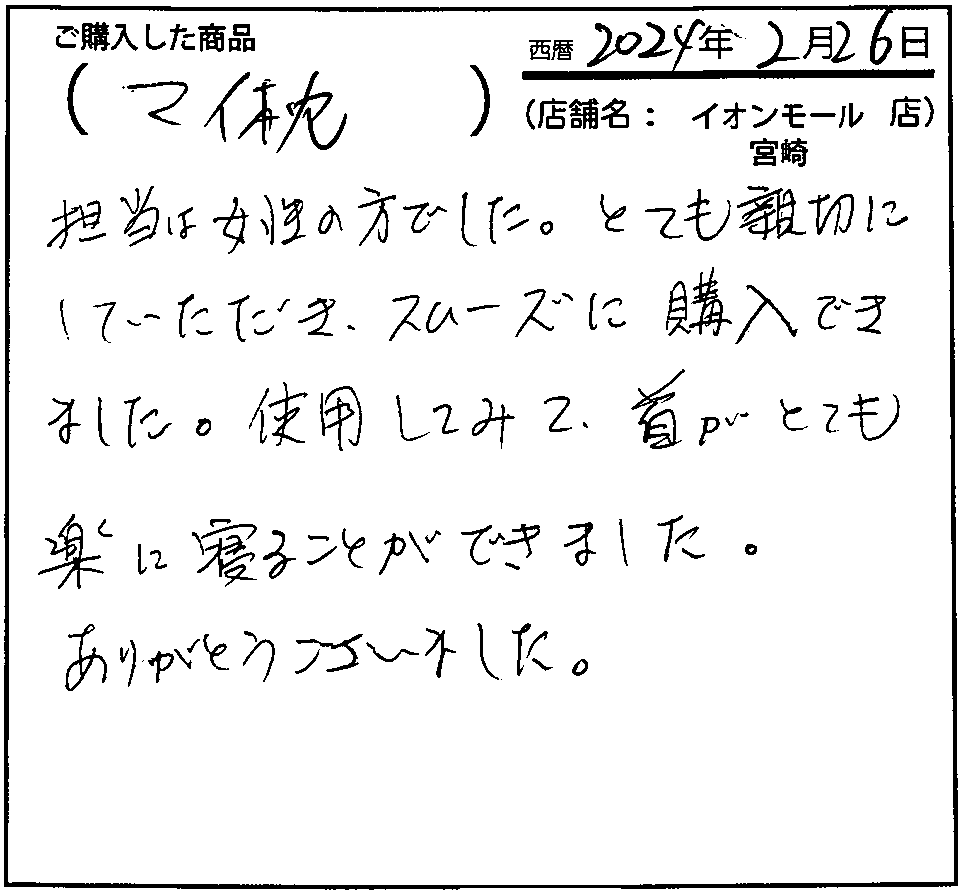 ご購入した商品
西暦 2024年 2月26日
(マイ枕)
(店舗名: イオンモール 店)
宮崎
担当は女性の方でした。とても親切に
していただき、スムーズに購入でき
ました。使用してみて、首がとても
楽に寝ることができました。
ありがとうございました。